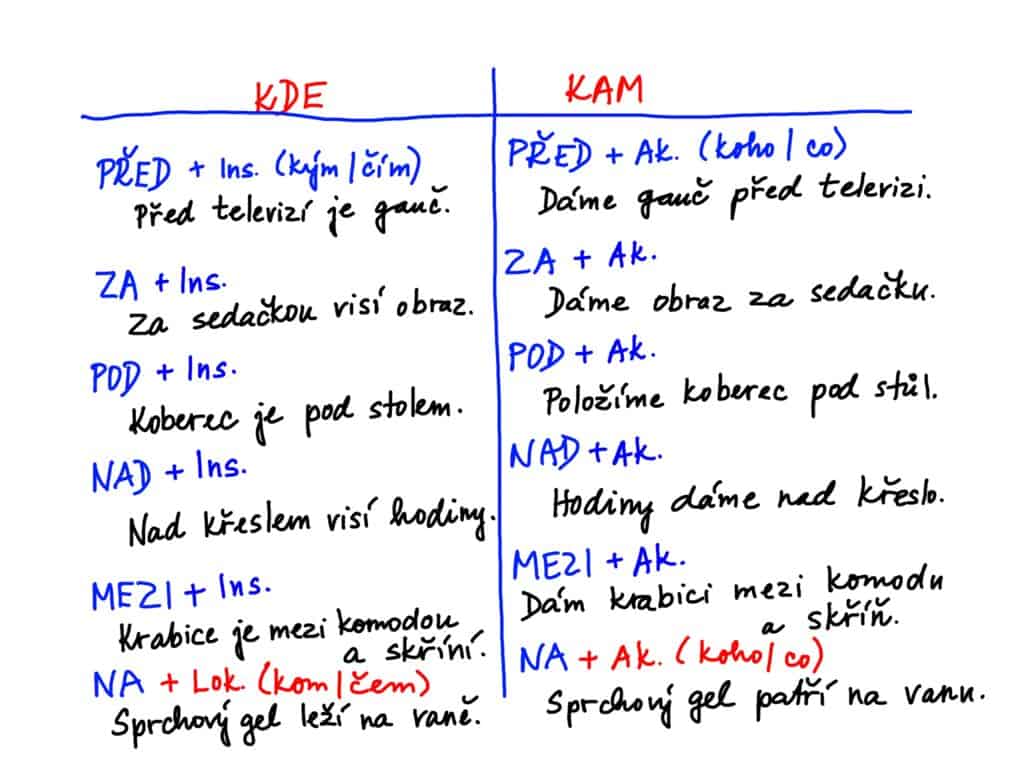 KDE
PŘED + Ins. (kým/čím)
Před televizí je gauč.
ZA + Ins.
Za sedačkou visí obraz.
POD + Ins.
Koberec je pod stolem.
NAD + Ins.
Nad křeslem visí hodiny.
MEZI + Ins.
Krabice je mezi komodou
a skříní.
NA + Lok. (kom/čem)
Sprchový gel leží na vaně.
KAM
PŘED + Ak. (koho/co)
Dáme gauč před televizi.
ZA + Ak.
Dáme obraz za sedačku.
POD + Ak.
Položíme koberec pod stůl.
NAD + Ak.
Hodiny dáme nad křeslo.
MEZI + Ak.
Dám krabici mezi komodu
a skříň.
NA + Ak. (koho/co)
Sprchový gel patří na vanu.